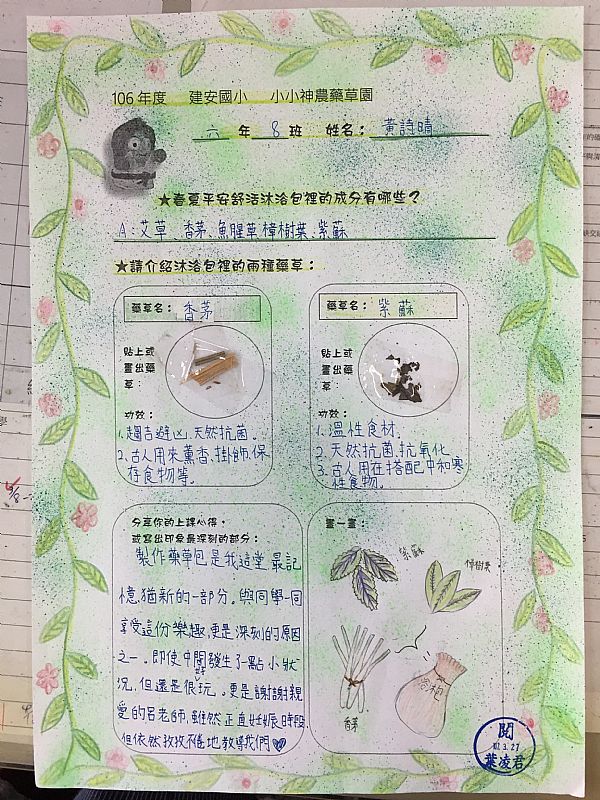 106 年度 建安國小 小小神農藥草園
六 年 8 班 姓名： 黃詩晴
★春夏平安舒活沐浴包裡的成分有哪些？
A：艾草、香茅、魚腥草、樟樹葉、紫蘇
★請介紹沐浴包裡的兩種藥草：
藥草名： 香茅
貼上或
畫出藥
草：
功效：
1. 趨吉避凶、天然抗菌。
2. 古人用來薰香、掛飾、保
存食物等。
藥草名： 紫蘇
貼上或
畫出藥
草：
功效：
1. 溫性食材。
2. 天然抗菌、抗氧化
3. 古人用在搭配中和寒
性食物。
分享你的上課心得，
或寫出印象最深刻的部分：
製作藥草包是我這堂最記
憶猶新的一部分。與同學一同
享受這份樂趣，更是深刻的原因
之一。即使中間發生了一點小狀
況，但還是很好玩。更是謝謝親
愛的呂老師，雖然正直妊娠時段
但依然孜孜不倦地教導我們♡
畫一畫：
紫蘇
樟樹葉
香茅
浴包
閱
3.27
葉凌君